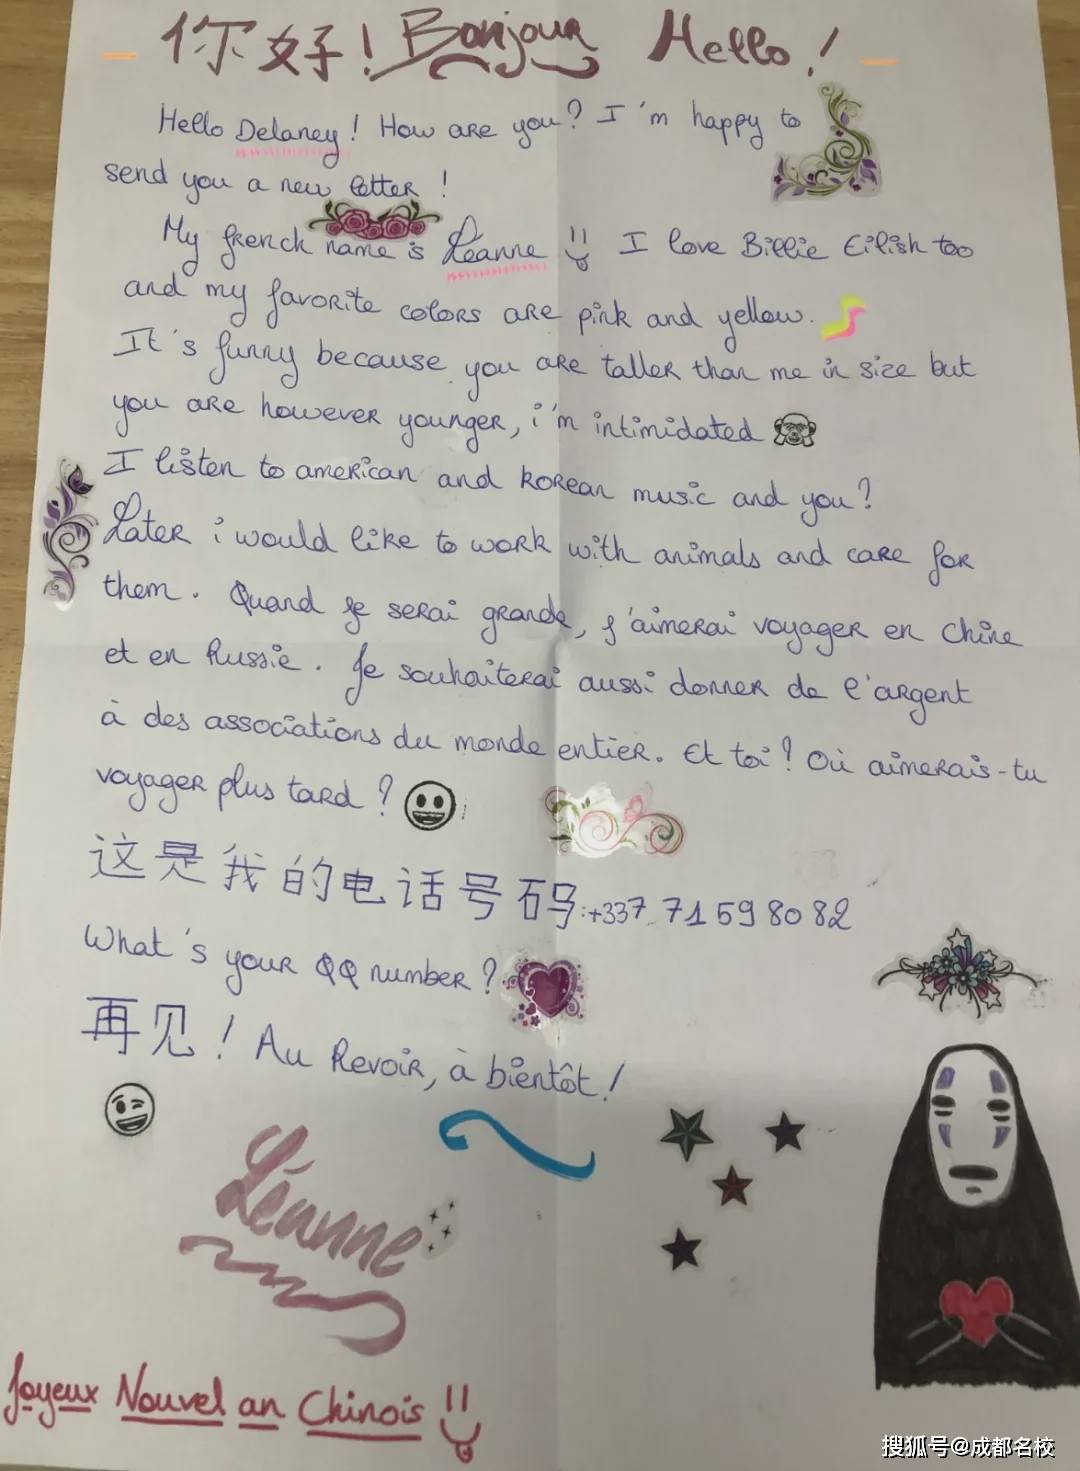 你好! Bonjour Hello!
Hello Delaney! How are you? I'm happy to
send you a new letter!
My french name is Léanne I love Billie Eilish too
and my favorite colors are pink and yellow.
It's funny because you are taller than me in size but
you are however younger, i'm intimidated
I listen to american and korean music and you?
Later i would like to work with animals and care for
them. Quand je serai grande, j'aimerai voyager en Chine
et en Russie. Je souhaiterai aussi donner de l'argent
à des associations du monde entier. Et toi? Où aimerais-tu
voyager plus tard?
这是我的电话号码:+337 71 59 80 82
What's your QQ number?
再见! Au Revoir, à bientôt!
Léanne
Joyeux Nouvel an Chinois
搜狐号@成都名校